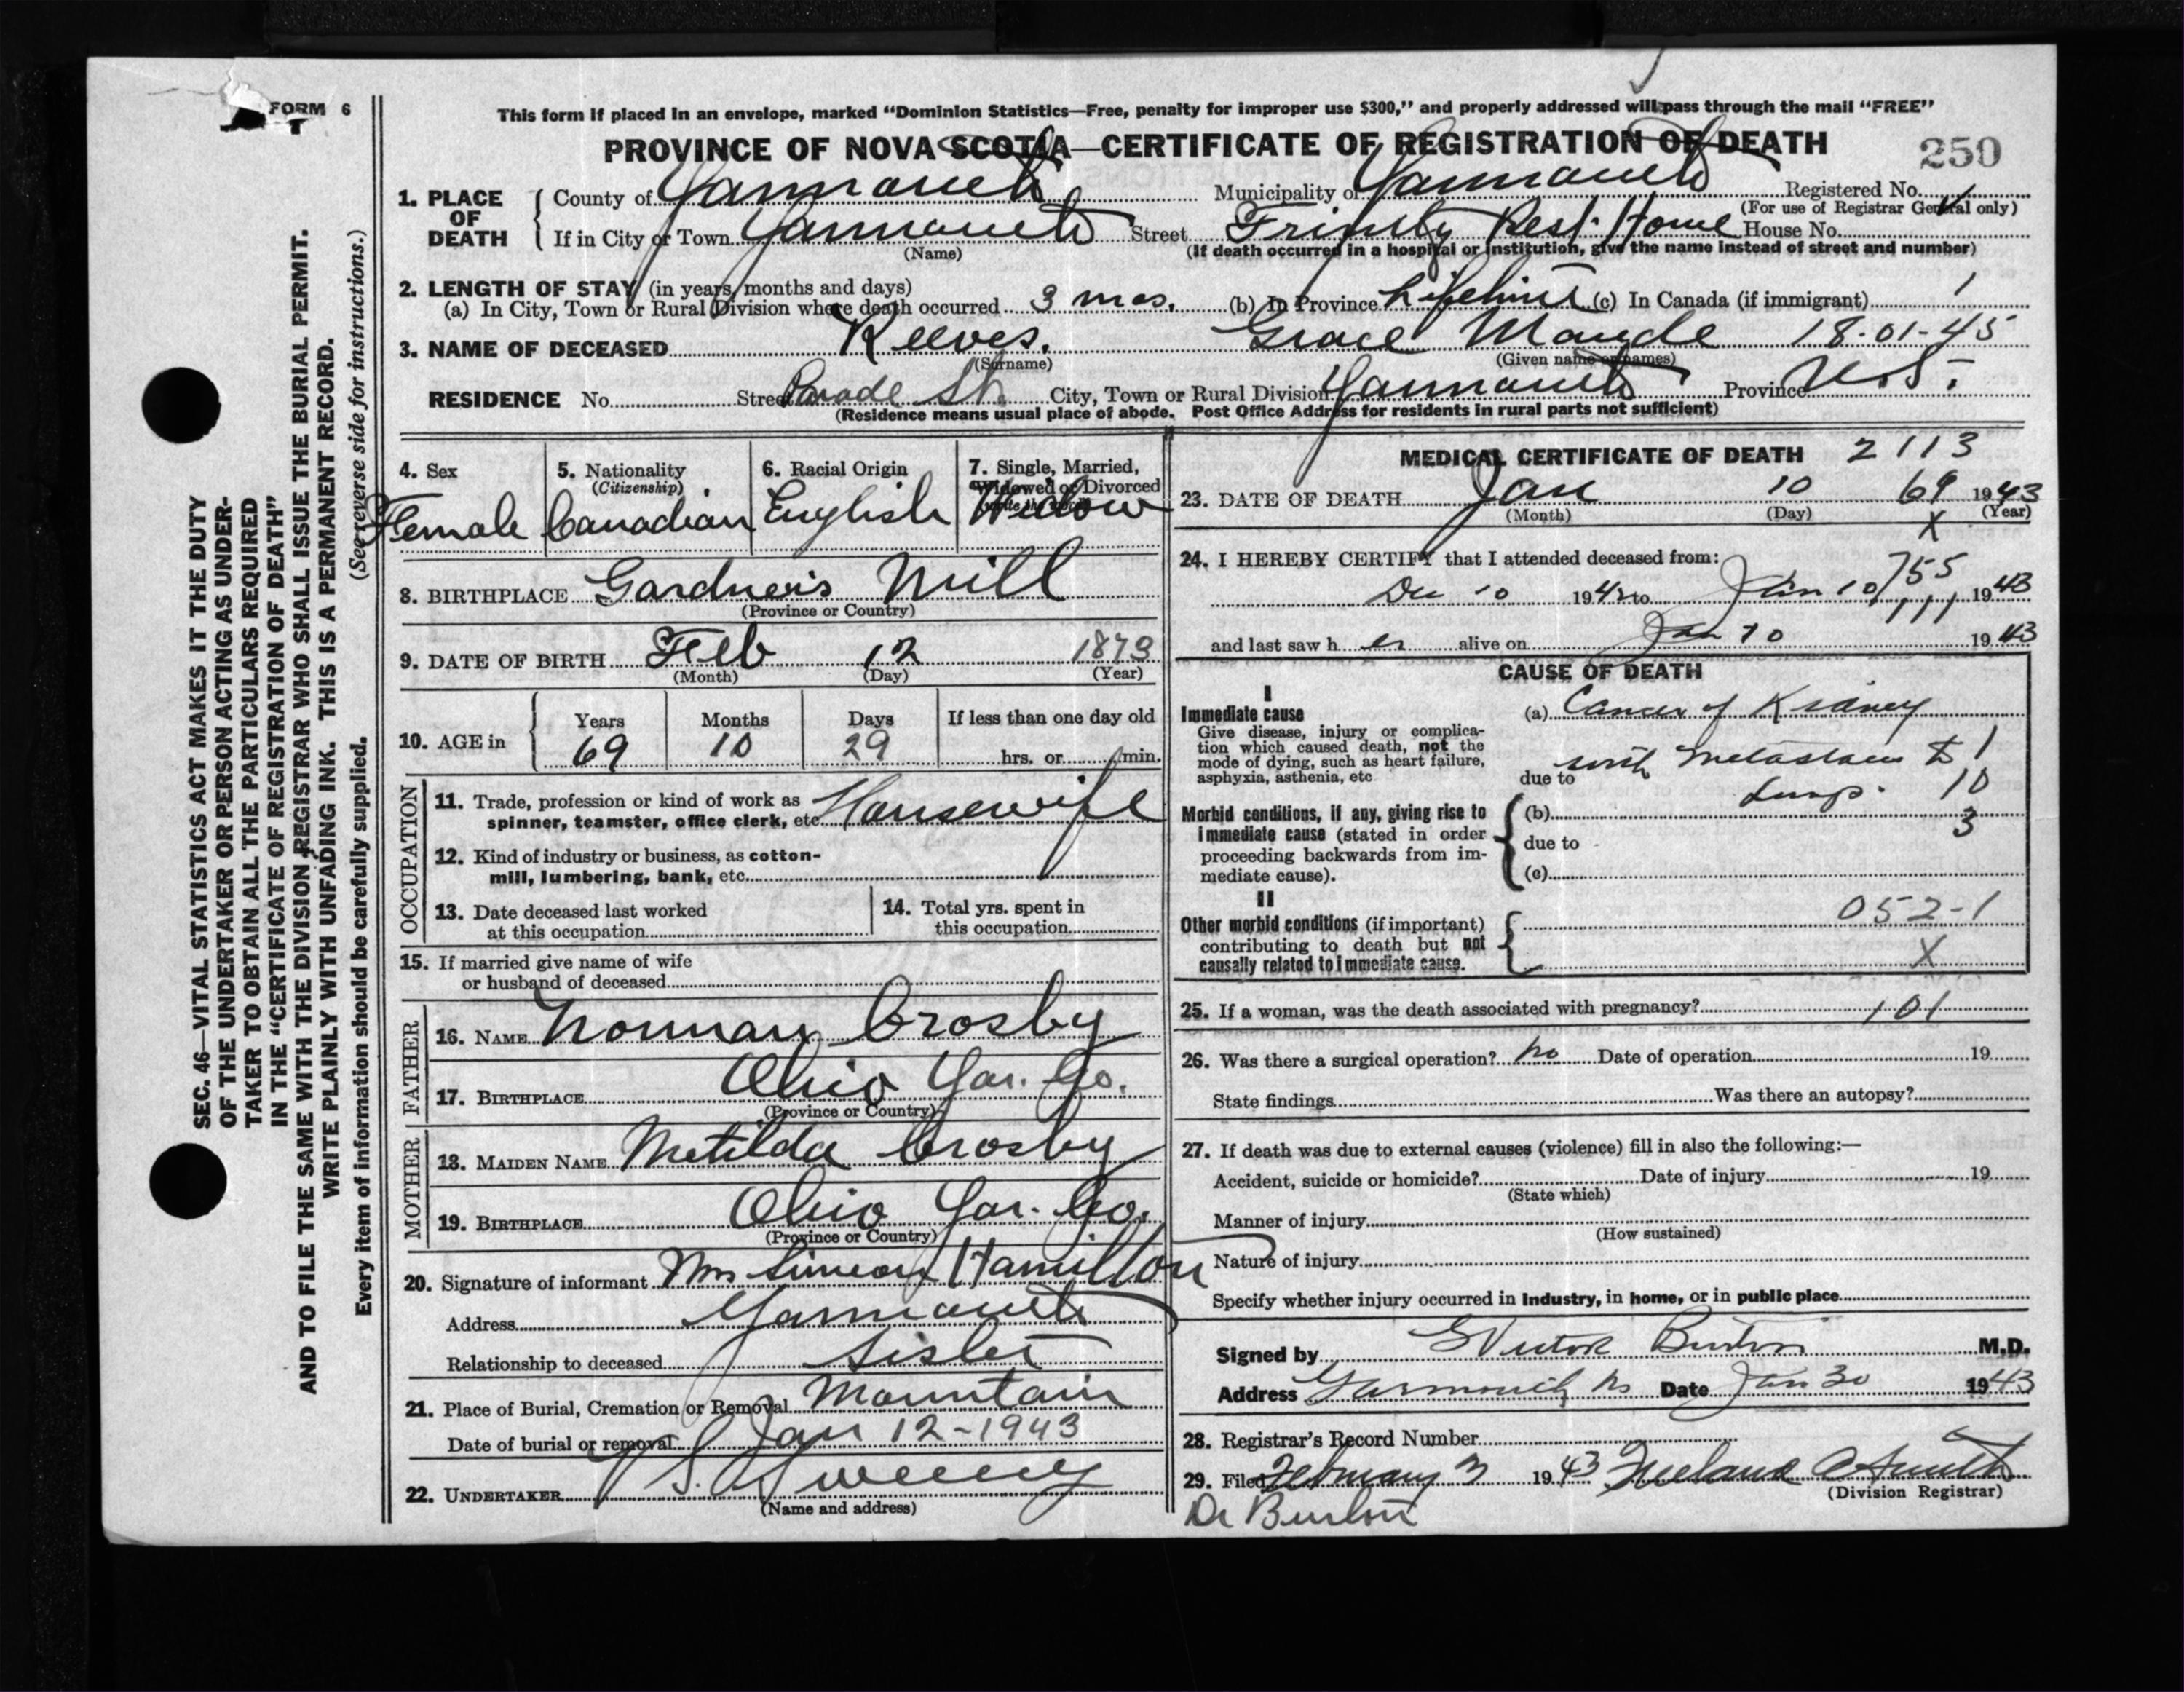 FORM 6
This form if placed in an envelope, marked “Dominion Statistics—Free, penalty for improper use $300,” and properly addressed will pass through the mail “FREE”
PROVINCE OF NOVA SCOTIA—CERTIFICATE OF REGISTRATION OF DEATH
250
1. PLACE OF DEATH
County of Yarmouth Municipality of Yarmouth Registered No.
(For use of Registrar General only)
If in City or Town Yarmouth Street Trinity Rest Home House No.
(Name) (If death occurred in a hospital or institution, give the name instead of street and number)
2. LENGTH OF STAY (in years, months and days)
(a) In City, Town or Rural Division where death occurred 3 mos. (b) In Province Lifetime (c) In Canada (if immigrant) 1
3. NAME OF DECEASED Reeves. Grace Maude 18-01-45
(Surname) (Given name or names)
RESIDENCE No. Street Parade St. City, Town or Rural Division Yarmouth Province N.S.
(Residence means usual place of abode. Post Office Address for residents in rural parts not sufficient)
4. Sex
Female
5. Nationality
(Citizenship)
Canadian
6. Racial Origin
English
7. Single, Married,
Widowed or Divorced
Widow
8. BIRTHPLACE Gardner's Mill
(Province or Country)
9. DATE OF BIRTH Feb 12 1873
(Month) (Day) (Year)
10. AGE in
Years Months Days If less than one day old
69 10 29 hrs. or min.
OCCUPATION
11. Trade, profession or kind of work as
spinner, teamster, office clerk, etc. Housewife
12. Kind of industry or business, as cotton-
mill, lumbering, bank, etc.
13. Date deceased last worked
at this occupation
14. Total yrs. spent in
this occupation
15. If married give name of wife
or husband of deceased
FATHER
16. NAME Norman Crosby
17. BIRTHPLACE Ohio Yar. Co.
(Province or Country)
MOTHER
18. MAIDEN NAME Metilda Crosby
19. BIRTHPLACE Ohio Yar. Co.
(Province or Country)
20. Signature of informant Mrs Simeon Hamilton
Address Yarmouth
Relationship to deceased Sister
21. Place of Burial, Cremation or Removal Mountain
Date of burial or removal Jan 12-1943
22. UNDERTAKER V S. Sweeny
(Name and address)
MEDICAL CERTIFICATE OF DEATH 2113
23. DATE OF DEATH Jan 10 69 1943
(Month) (Day) X (Year)
24. I HEREBY CERTIFY that I attended deceased from:
755
Dec 10 1942 to Jan 10 1943
111
and last saw her alive on Jan 10 1943
CAUSE OF DEATH
I
Immediate cause
Give disease, injury or complica-
tion which caused death, not the
mode of dying, such as heart failure,
asphyxia, asthenia, etc
(a) Cancer of Kidney
due to with Metastases to 1
Lungs. 10
Morbid conditions, if any, giving rise to
immediate cause (stated in order
proceeding backwards from im-
mediate cause).
(b) 3
due to
(c)
II
Other morbid conditions (if important)
contributing to death but not
causally related to immediate cause.
052-1
X
25. If a woman, was the death associated with pregnancy? 101
26. Was there a surgical operation? No Date of operation 19
State findings Was there an autopsy?
27. If death was due to external causes (violence) fill in also the following:—
Accident, suicide or homicide? Date of injury 19
(State which)
Manner of injury
(How sustained)
Nature of injury
Specify whether injury occurred in Industry, in home, or in public place
Signed by Victor Burton M.D.
Address Yarmouth NS Date Jan 30 1943
28. Registrar's Record Number
29. Filed February 3 1943
(Division Registrar)
Dr Burton
SEC. 46—VITAL STATISTICS ACT MAKES IT THE DUTY
OF THE UNDERTAKER OR PERSON ACTING AS UNDER-
TAKER TO OBTAIN ALL THE PARTICULARS REQUIRED
IN THE “CERTIFICATE OF REGISTRATION OF DEATH”
AND TO FILE THE SAME WITH THE DIVISION REGISTRAR WHO SHALL ISSUE THE BURIAL PERMIT.
WRITE PLAINLY WITH UNFADING INK. THIS IS A PERMANENT RECORD.
Every item of information should be carefully supplied. (See reverse side for instructions.)